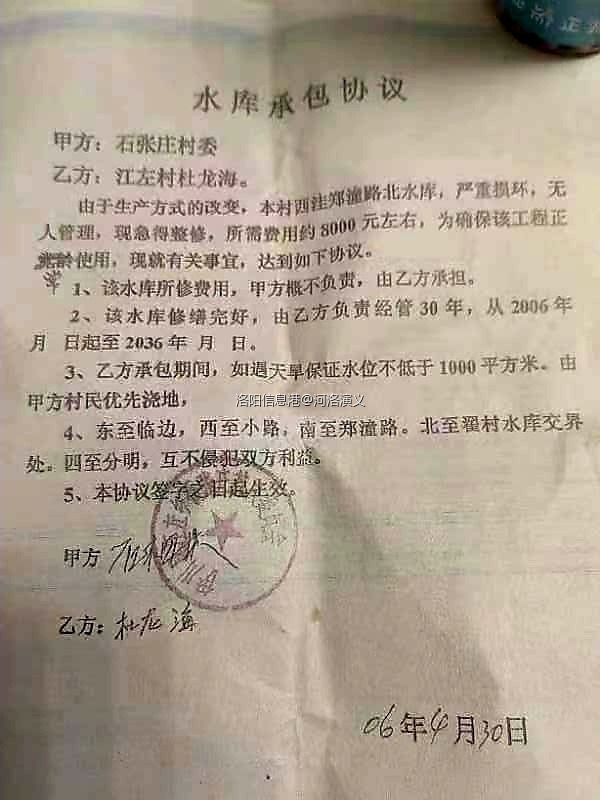 水库承包协议
甲方：石张庄村委
乙方：江左村杜龙海。
由于生产方式的改变，本村西洼郑潼路北水库，严重损环，无
人管理，现急得整修，所需费用约8000元左右，为确保该工程正
使用，现就有关事宜，达到如下协议。
1、该水库所修费用，甲方概不负责，由乙方承担。
2、该水库修缮完好，由乙方负责经管30年，从2006年
月 日起至2036年 月 日。
3、乙方承包期间，如遇天旱保证水位不低于1000平方米。由
甲方村民优先浇地，
洛阳信息港@河洛演义
4、东至临边，西至小路，南至郑潼路。北至翟村水库交界
处。四至分明，互不侵犯双方利益。
5、本协议签字之日起生效。
甲方
乙方：杜龙海
06年4月30日